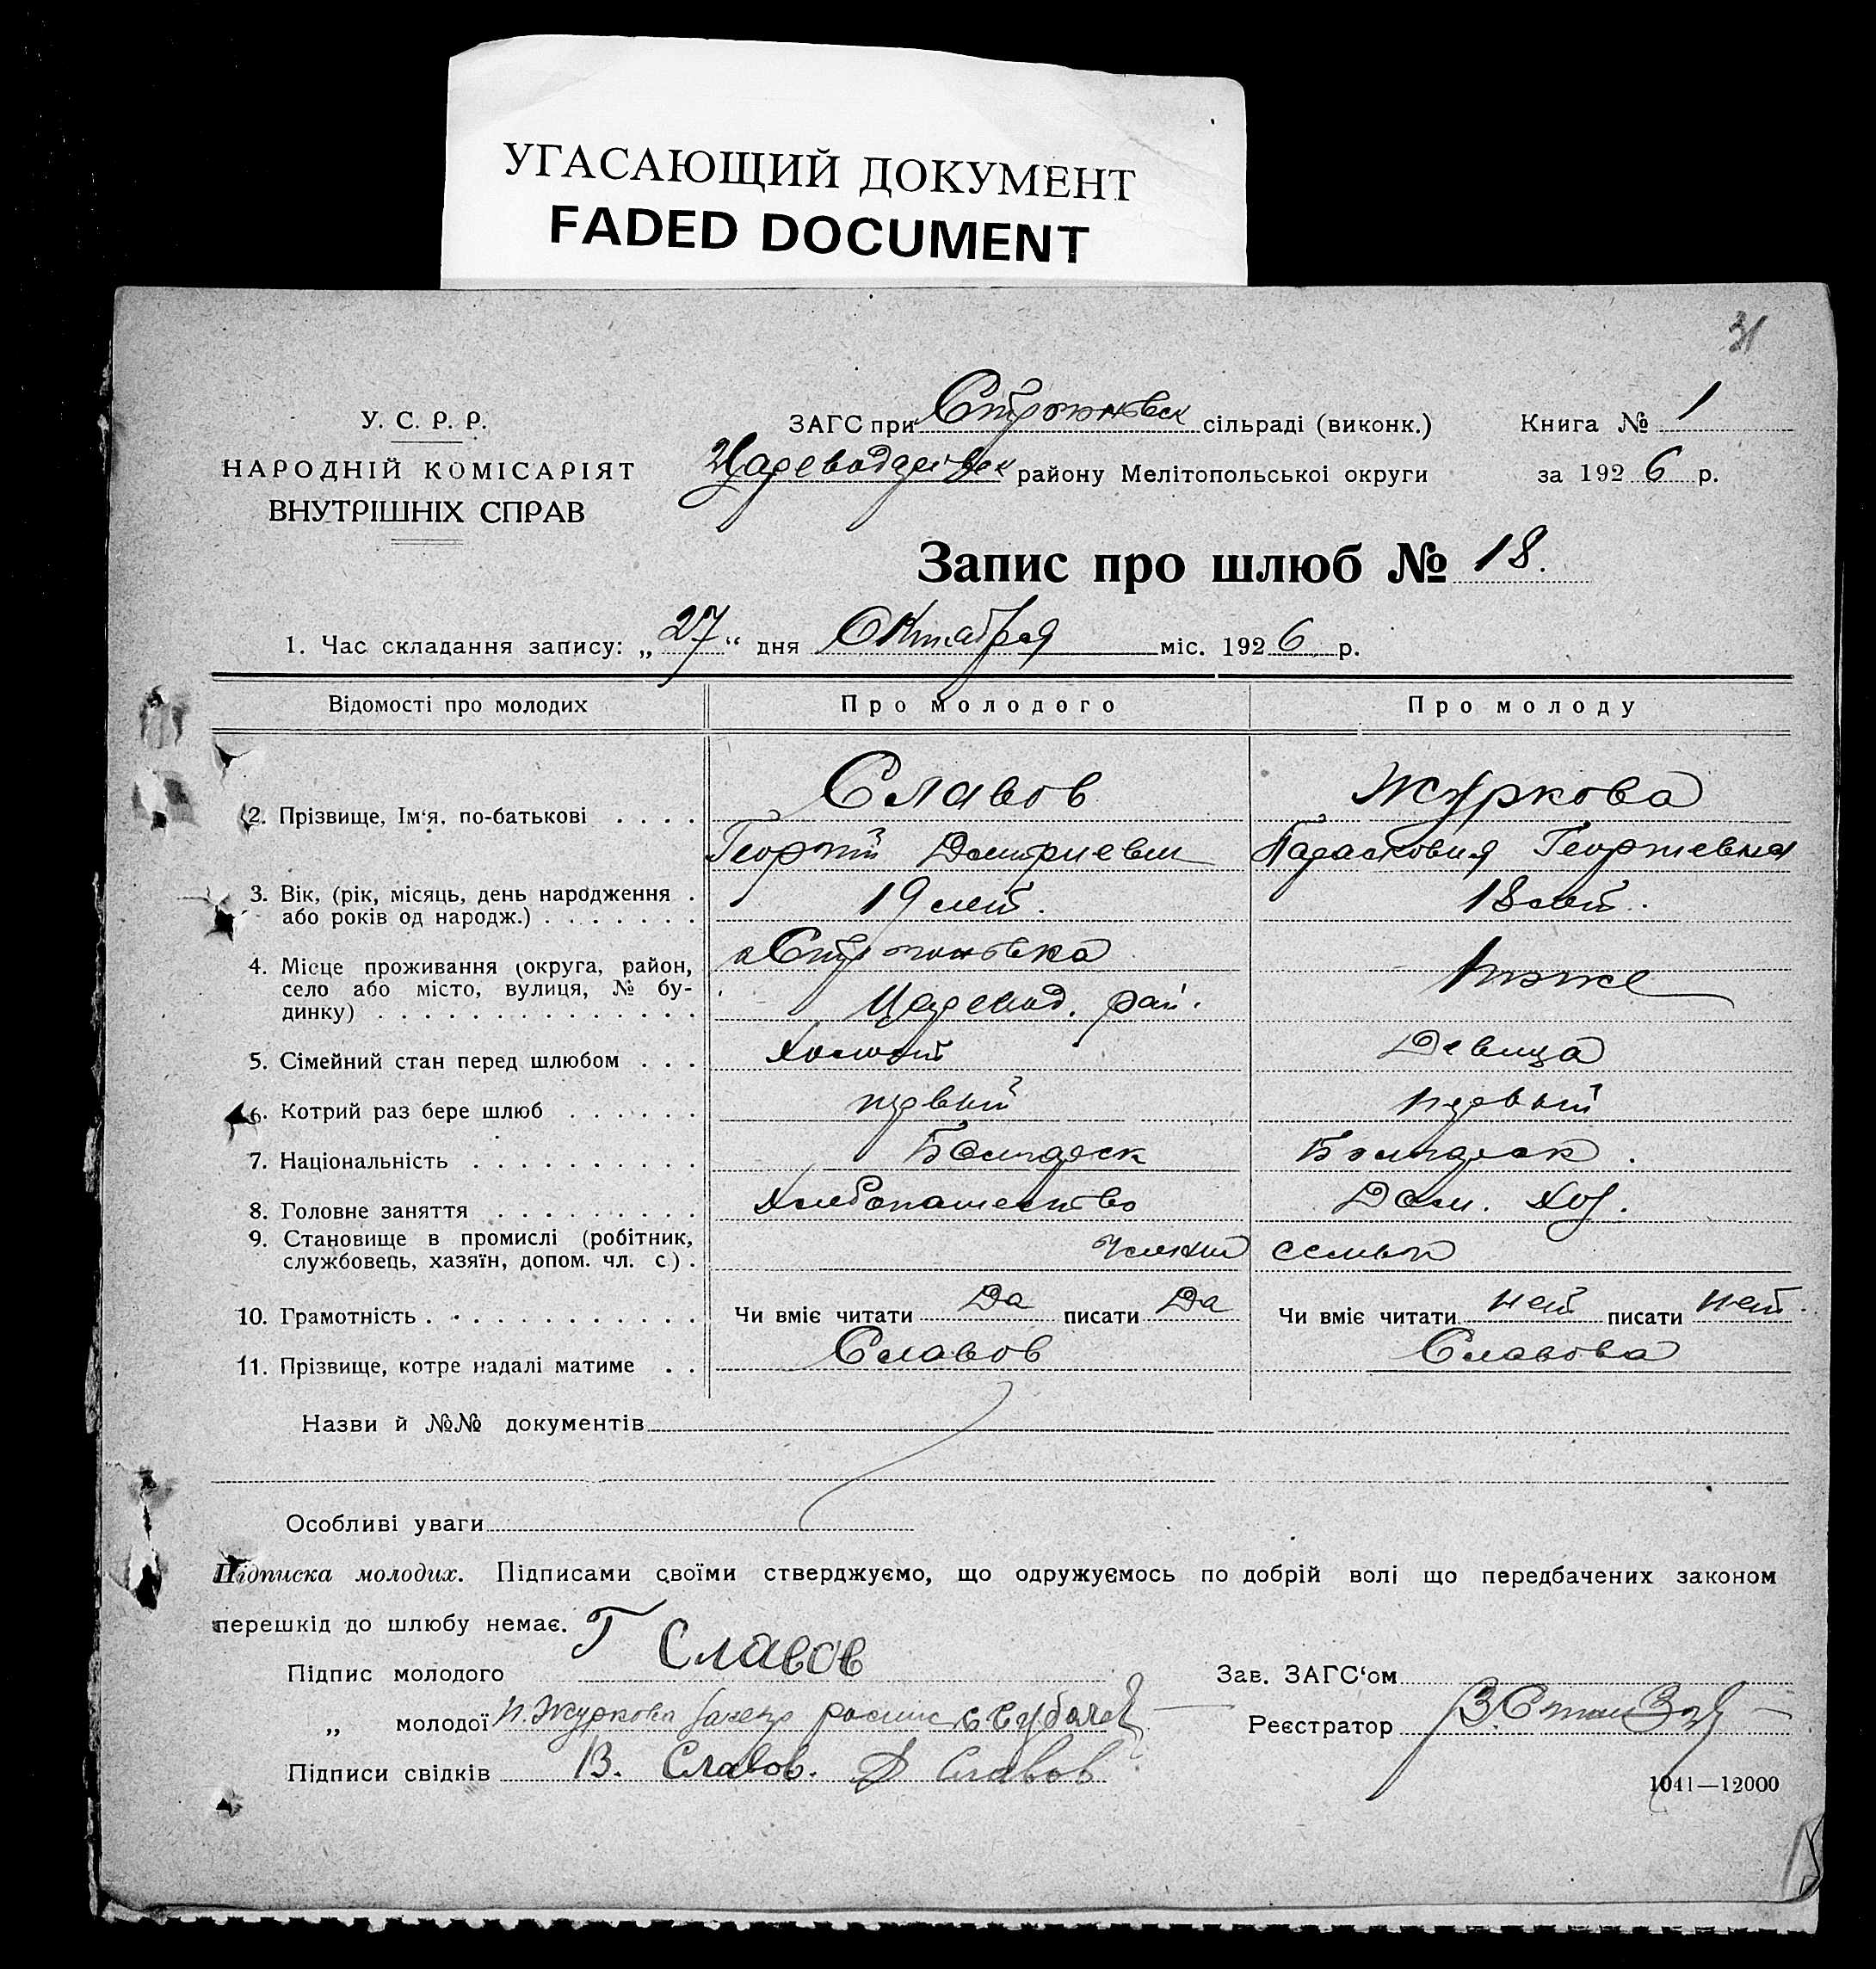 УГАСАЮЩИЙ ДОКУМЕНТ
FADED DOCUMENT
31
У. С. Р. Р.
НАРОДНІЙ КОМІСАРІЯТ
ВНУТРІШНІХ СПРАВ
ЗАГС при Строгановск сільраді (виконк.)
Книга № 1
району Мелітопольської округи
за 1926 р.
Запис про шлюб № 18.
1. Час складання запису: „27" дня Октября міс. 1926 р.
Відомості про молодих Про молодого Про молоду
2. Прізвище, Ім'я, по-батькові . . . . Славов Журкова
Георгий Дмитриевич Парасковия Георгиевна
3. Вік, (рік, місяць, день народження . або років од народж.) . . . . . . . 19 лет. 18 лет.
4. Місце проживання (округа, район, село або місто, вулиця, № будинку) . . . . . . . . . . . . . .
Царевод. рай.
тоже
5. Сімейний стан перед шлюбом . . . Холост Девица
6. Котрий раз бере шлюб . . . . . . первый первый
7. Національність . . . . . . . . . . Болгарск Болгарск.
8. Головне заняття . . . . . . . . . Хлебопашество Дом. Хоз.
9. Становище в промислі (робітник, службовець, хазяїн, допом. чл. с.) . Члены семьи
10. Грамотність . . . . . . . . . . . . Чи вміє читати Да писати Да Чи вміє читати нет писати нет.
11. Прізвище, котре надалі матиме . . Славов Славова
Назви й №№ документів
Особливі уваги
Підписка молодих. Підписами своїми стверджуємо, що одружуємось по добрій волі що передбачених законом
перешкід до шлюбу немає.
Підпис молодого Г Славов
Зав. ЗАГС'ом
„ молодої П. Журкова
Реєстратор
Підписи свідків В. Славов. Д Славов
1041—12000